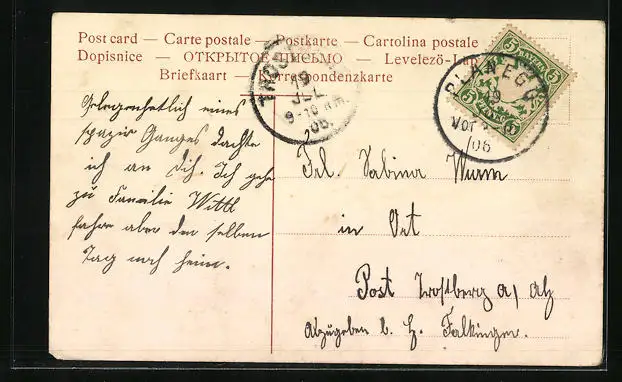 Post card — Carte postale — Postkarte — Cartolina postale
Dopisnice — ОТКРЫТОЕ ПИСЬМО — Levelező-Lap
Briefkaart — Korrespondenzkarte
TROSTBERG
19
JUL
9-10 V.M.
06
PLANEGG
19
Vor
/06
5 BAYERN 5
5 5
Gelegenhetlich eines
spazir Ganges dachte
ich an Dih. Ich gehe
zu Familie Wittl
fahre aber den selben
Tag noch heim.
Frl. Sabina Wurm
in Ort
Post Trostberg a/ Alz
Abzugeben b. H. Falkinger.